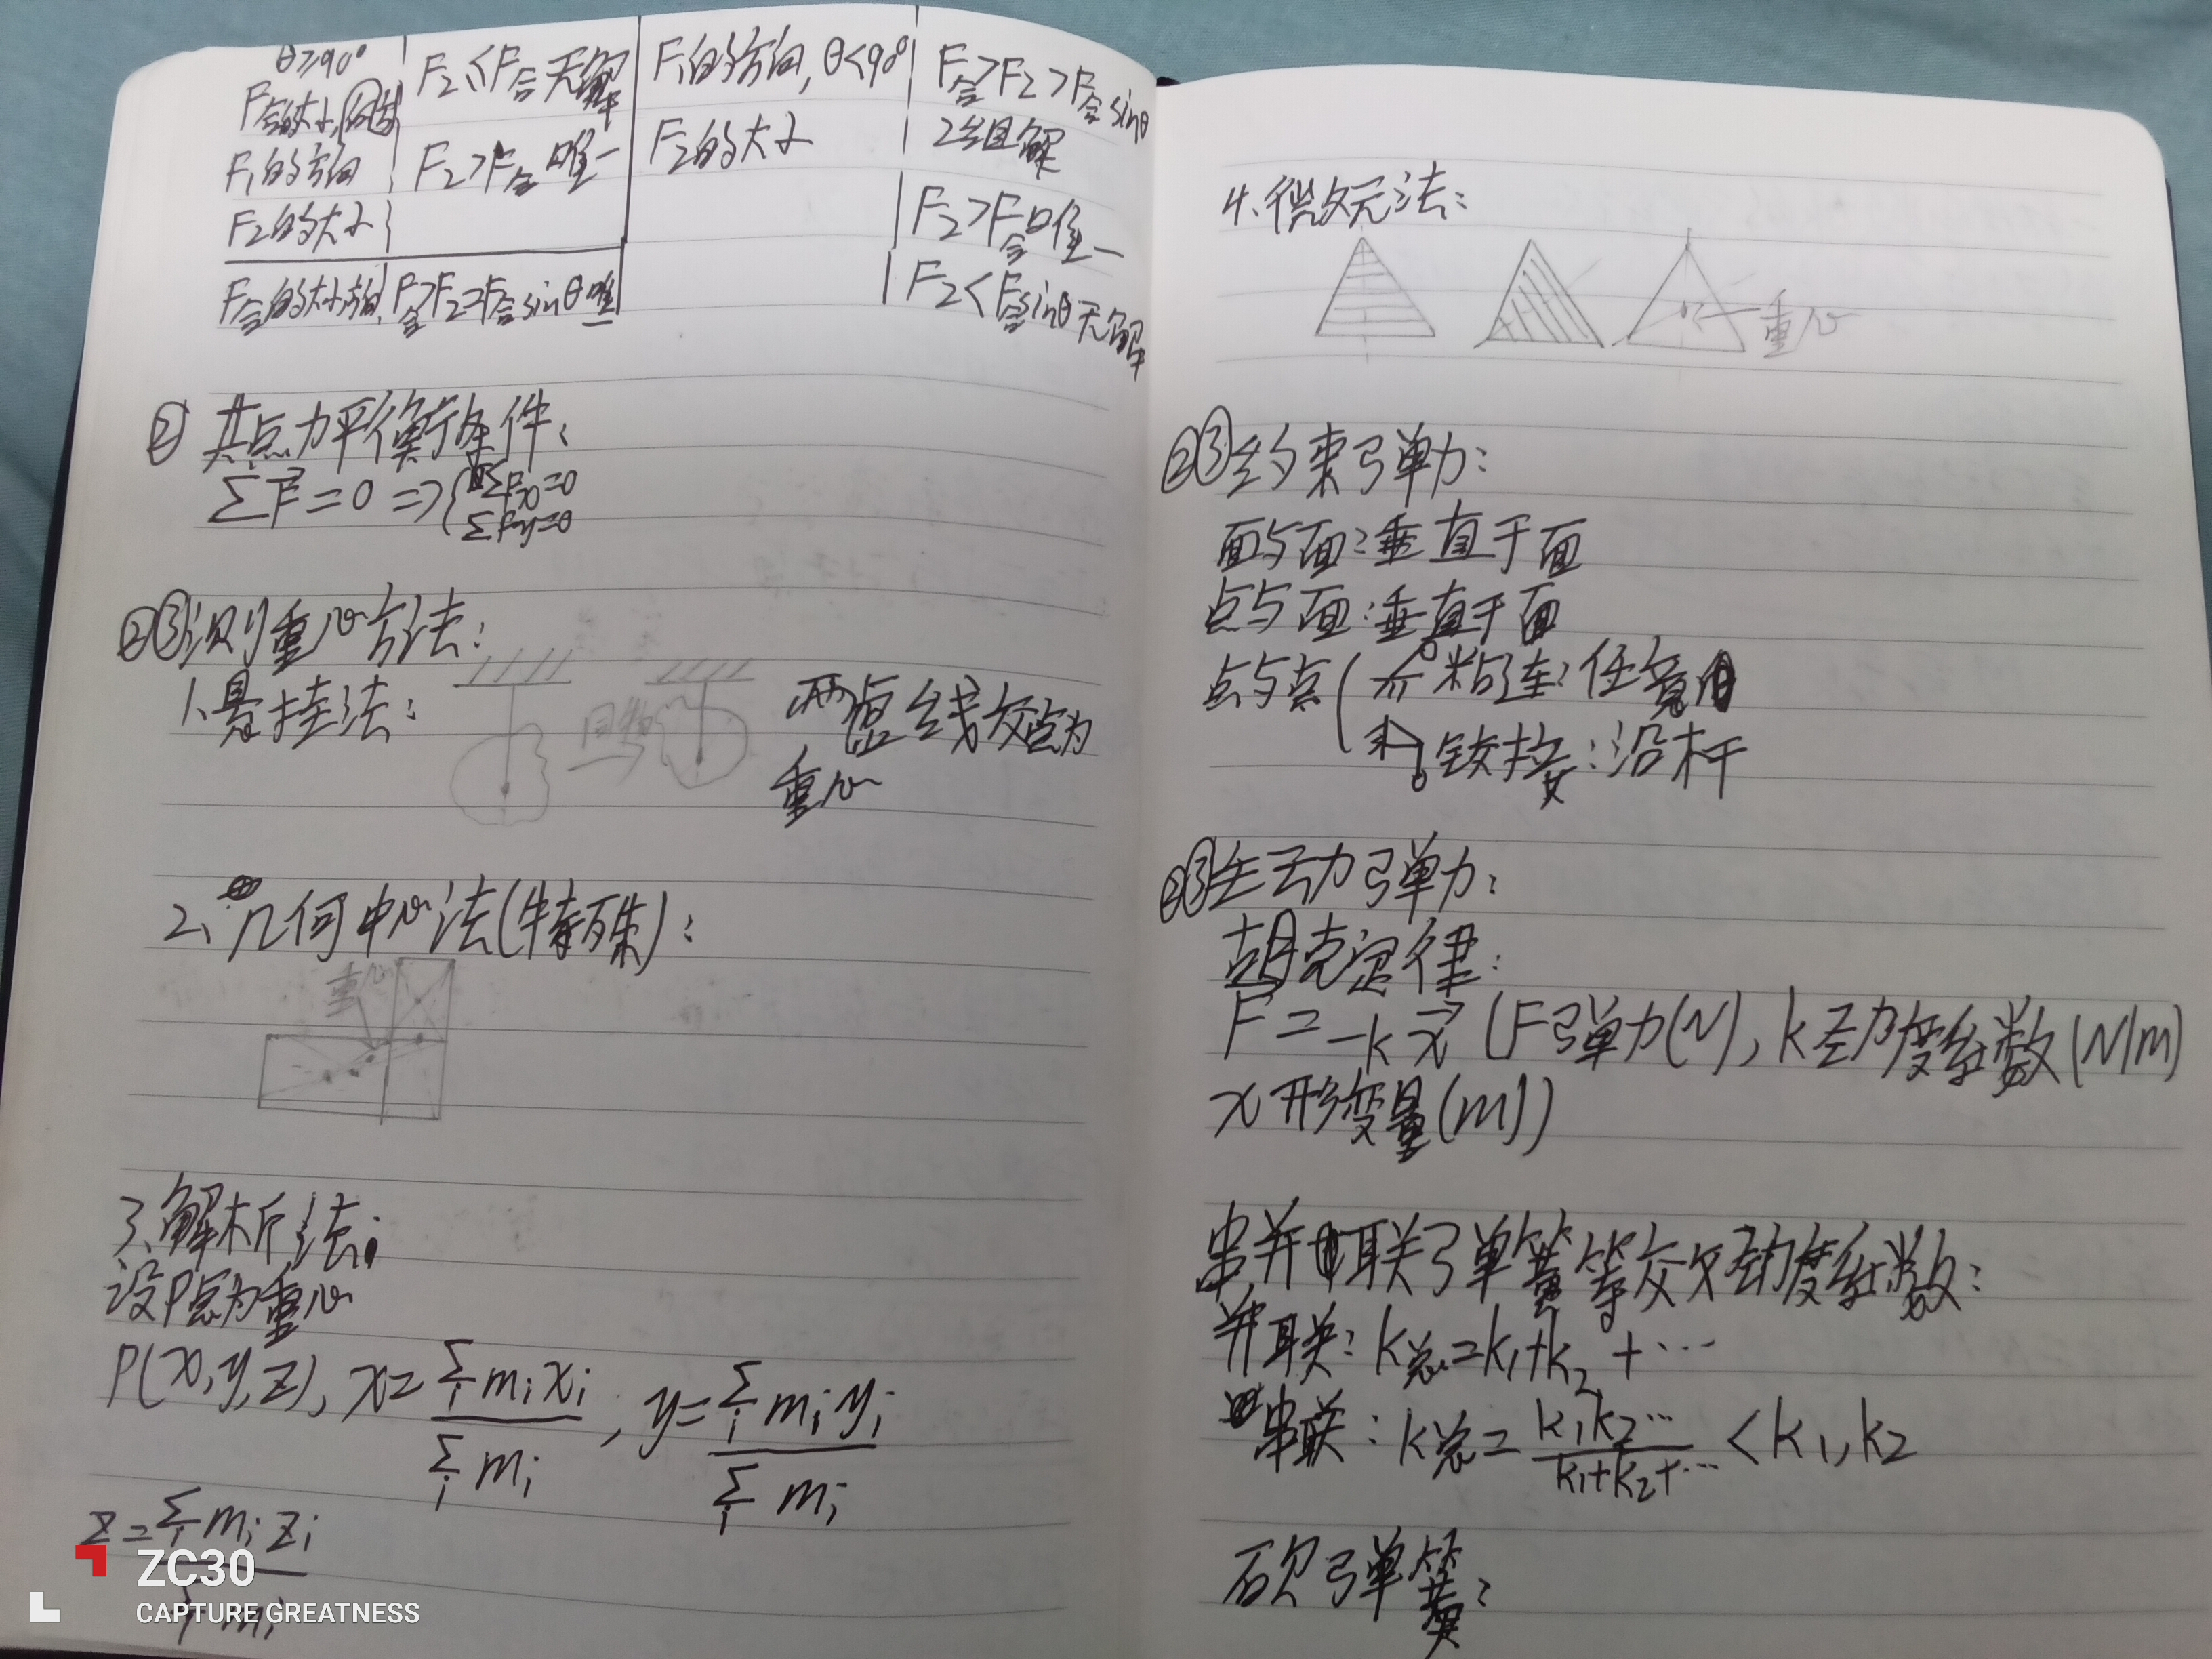 θ≥90°
F合的大小,方向
F₁的方向
F₂的大小
F₂≤F合无解
F₂>F合唯一
F₁的方向,θ<90°
F₂的大小
F合>F₂>F合sinθ
2组解
F₂>F合唯一
F₂<F合sinθ无解
F合的大小,方向
F合>F₂=F合sinθ唯一
② 共点力平衡条件:
ΣF⃗=0 => { ΣFx=0
ΣFy=0
②③测重心方法:
1.悬挂法:
同物
两虚线交点为
重心
2.几何中心法(特殊):
重心
3.解析法:
设P点为重心
P(x,y,z), x=Σᵢmᵢxᵢ/Σᵢmᵢ, y=Σᵢmᵢyᵢ/Σᵢmᵢ
z=Σᵢmᵢzᵢ/Σᵢmᵢ
4.微元法:
重心
②③约束弹力:
面与面:垂直于面
点与面:垂直于面
点与点( 粘连:任意
铰接:沿杆
②③主动弹力:
胡克定律:
F=-kx⃗ (F弹力(N), k劲度系数(N/m)
x形变量(m))
串并联弹簧等效劲度系数:
并联: k总=k₁+k₂+…
串联: k总=k₁k₂…/k₁+k₂+… <k₁,k₂
砍弹簧:
ZC30
CAPTURE GREATNESS